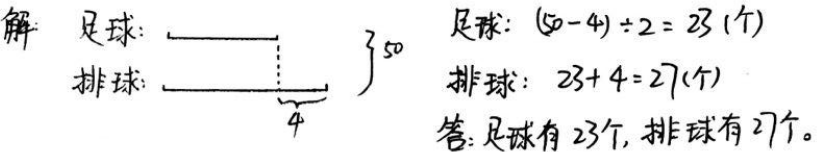 解: 足球:
排球:
4
}50
足球: (50-4)÷2=23(个)
排球: 23+4=27(个)
答:足球有23个,排球有27个。